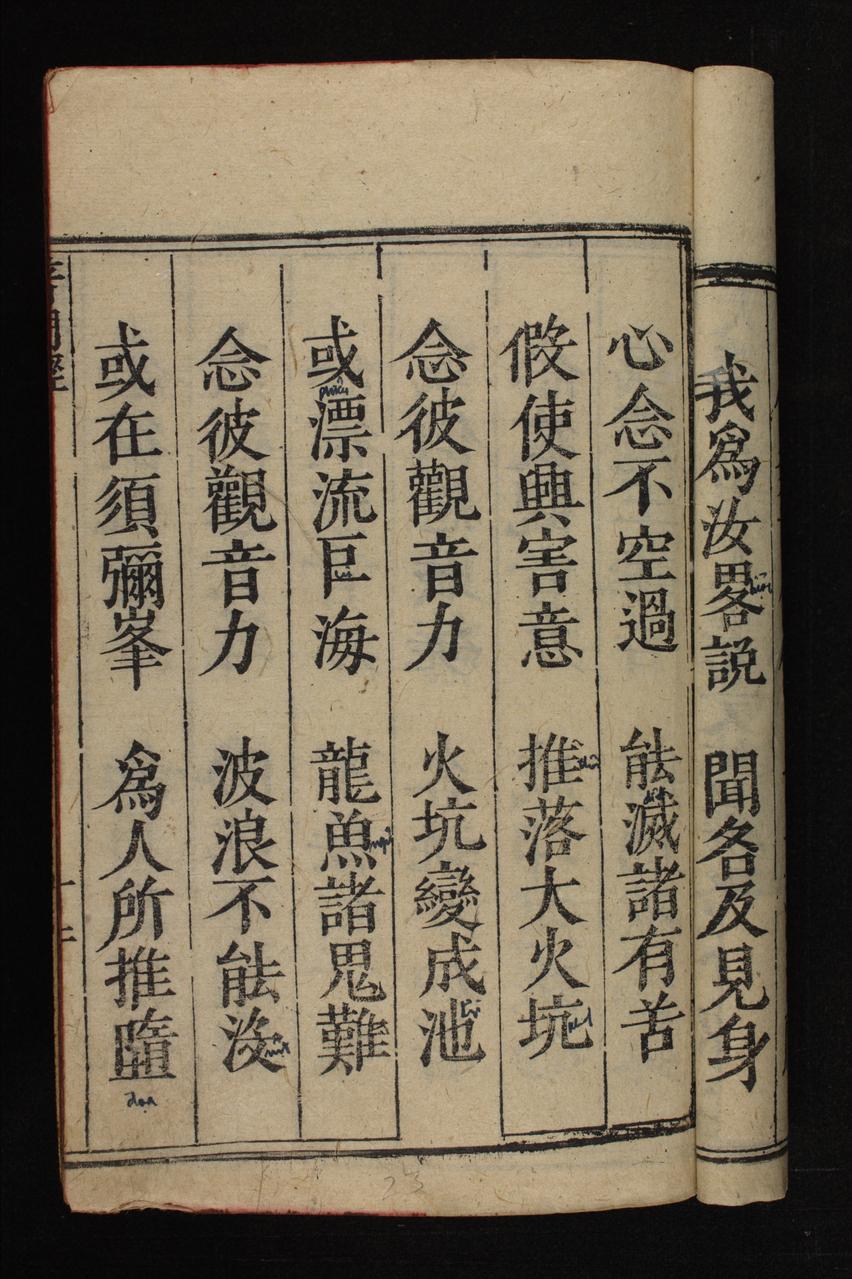 我爲汝畧説 聞名及見身
心念不空過 能滅諸有苦
假使興害意 推落大火坑
念彼觀音力 火坑變成池
或漂流巨海 龍魚諸鬼難
念彼觀音力 波浪不能沒
或在須彌峯 爲人所推墮
đọa
23